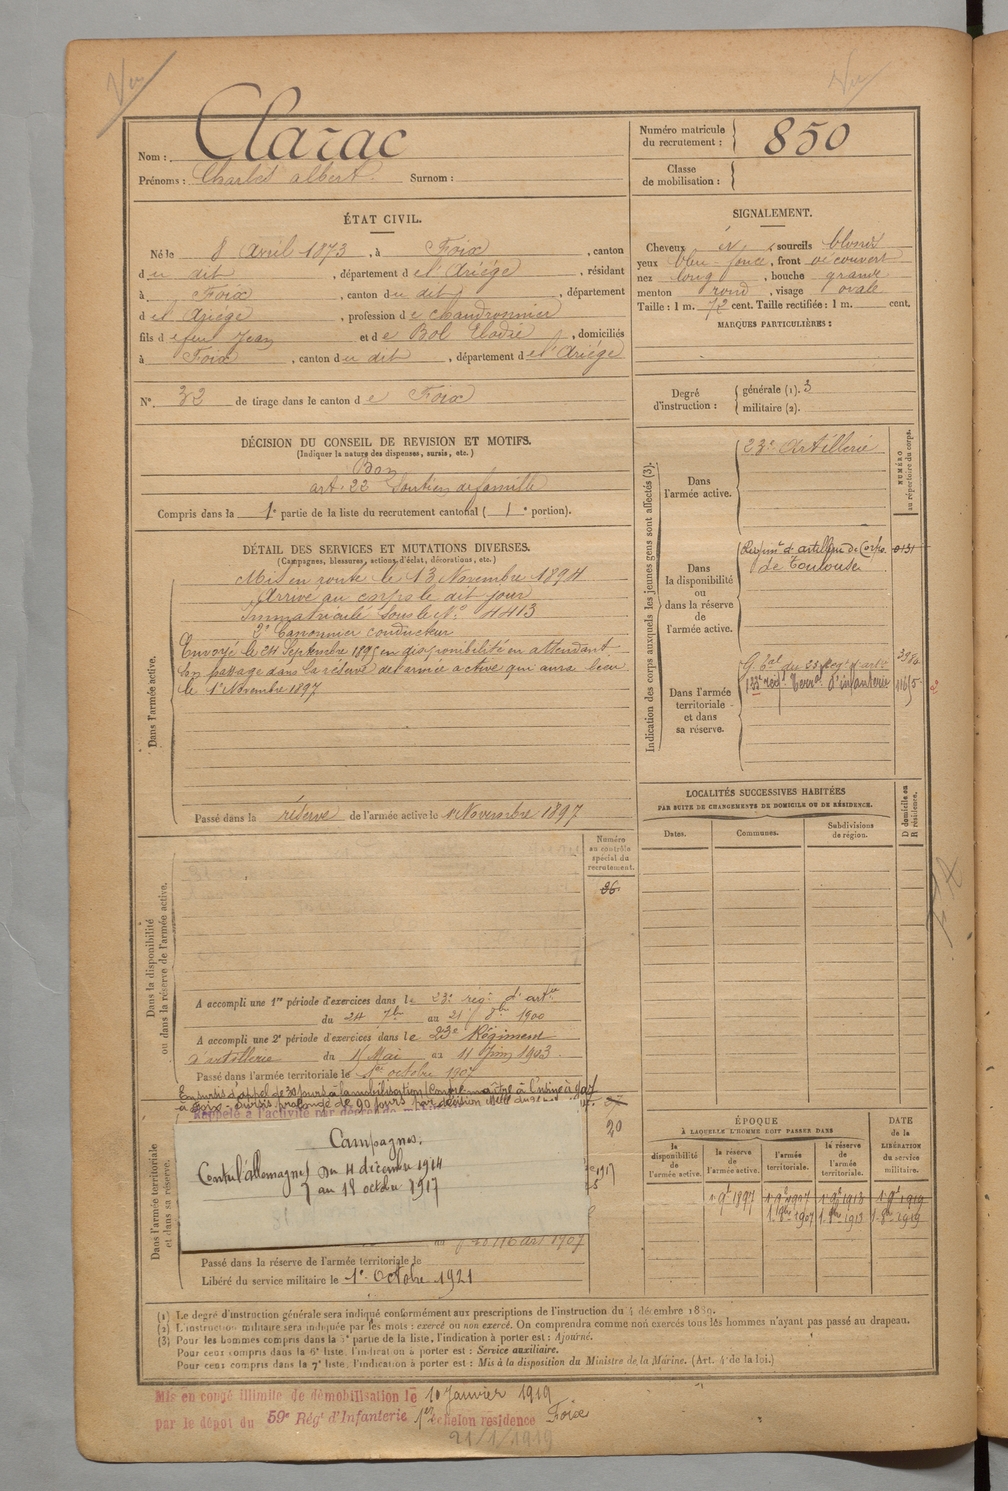 Nom : Clarac
Prénoms : Charles albert. Surnom :
Numéro matricule du recrutement : 850
Classe de mobilisation :
ÉTAT CIVIL.
Né le 8 Avril 1873, à Foix, canton
du dit, département de l'Ariége, résidant
à Foix, canton du dit, département
de l'Ariége, profession de chaudronnier
fils de feu Jean et de Bol Elodie, domiciliés
à Foix, canton du dit, département de l'Ariége
N° 32 de tirage dans le canton de Foix
SIGNALEMENT.
Cheveux sourcils blonds
yeux bleu-foncé, front découvert
nez long, bouche grande
menton rond, visage ovale
Taille : 1 m. 72 cent. Taille rectifiée : 1 m. cent.
MARQUES PARTICULIÈRES :
Degré d'instruction : générale (1). 3
militaire (2).
DÉCISION DU CONSEIL DE REVISION ET MOTIFS.
(Indiquer la nature des dispenses, sursis, etc.)
Bon
art. 22 Soutien de famille
Compris dans la 1e partie de la liste du recrutement cantonal ( 1e portion).
DÉTAIL DES SERVICES ET MUTATIONS DIVERSES.
(Campagnes, blessures, actions d'éclat, décorations, etc.)
Dans l'armée active.
Mis en route le 13 Novembre 1894
Arrivé au corps le dit jour
Immatriculé sous le N° 4413
2e Canonnier conducteur
Envoyé le 24 Septembre 1895 en disponibilité en attendant
son passage dans la réserve de l'armée active qui aura lieu
le 1er Novembre 1897
Passé dans la réserve de l'armée active le 1 Novembre 1897
Indication des corps auxquels les jeunes gens sont affectés (3).
NUMÉRO au répertoire du corps.
Dans l'armée active.
23e Artillerie
Dans la disponibilité ou dans la réserve de l'armée active.
Régimt d'artillerie de Corps 0131
de Toulouse
Dans l'armée territoriale et dans sa réserve.
G. tal du 23 Regt d'artie
133e régt Terral d'infanterie 11615
LOCALITÉS SUCCESSIVES HABITÉES
PAR SUITE DE CHANGEMENTS DE DOMICILE OU DE RÉSIDENCE.
Dates. Communes. Subdivisions de région. D domicile ou R résidence.
Dans la disponibilité ou dans la réserve de l'armée active.
Numéro au contrôle spécial du recrutement.
36
A accompli une 1re période d'exercices dans le 23e rég. d'artie
du 24 7bre au 21 8bre 1900
A accompli une 2e période d'exercices dans le 23e Régiment
d'artillerie du 15 Mai au 11 Juin 1903.
Passé dans l'armée territoriale le 1er octobre 1907
En sursis d'appel de 30 jours à la mobilisation
Rappelé à l'activité par décret
20
Dans l'armée territoriale et dans sa réserve.
Campagnes.
Contre l'allemagne du 4 décembre 1914
au 18 octobre 1917
Mars 1907
Passé dans la réserve de l'armée territoriale le
Libéré du service militaire le 1er Octobre 1921
ÉPOQUE
À LAQUELLE L'HOMME DOIT PASSER DANS
DATE de la LIBÉRATION du service militaire.
la disponibilité de l'armée active. la réserve de l'armée active. l'armée territoriale. la réserve de l'armée territoriale.
1 9bre 1897 1 9bre 1907 1 9bre 1913 1 9bre 1919
1. 8bre 1907 1. 8bre 1913 1. 8bre 1919
(1) Le degré d'instruction générale sera indiqué conformément aux prescriptions de l'instruction du 4 décembre 1889.
(2) L'instruction militaire sera indiquée par les mots : exercé ou non exercé. On comprendra comme non exercés tous les hommes n'ayant pas passé au drapeau.
(3) Pour les hommes compris dans la 5e partie de la liste, l'indication à porter est : Ajourné.
Pour ceux compris dans la 6e liste, l'indication à porter est : Service auxiliaire.
Pour ceux compris dans la 7e liste, l'indication à porter est : Mis à la disposition du Ministre de la Marine. (Art. 4 de la loi.)
Mis en congé illimité de démobilisation le 10 Janvier 1919
par le dépôt du 59e Régt d'Infanterie 1er échelon résidence Foix
21/1/1919